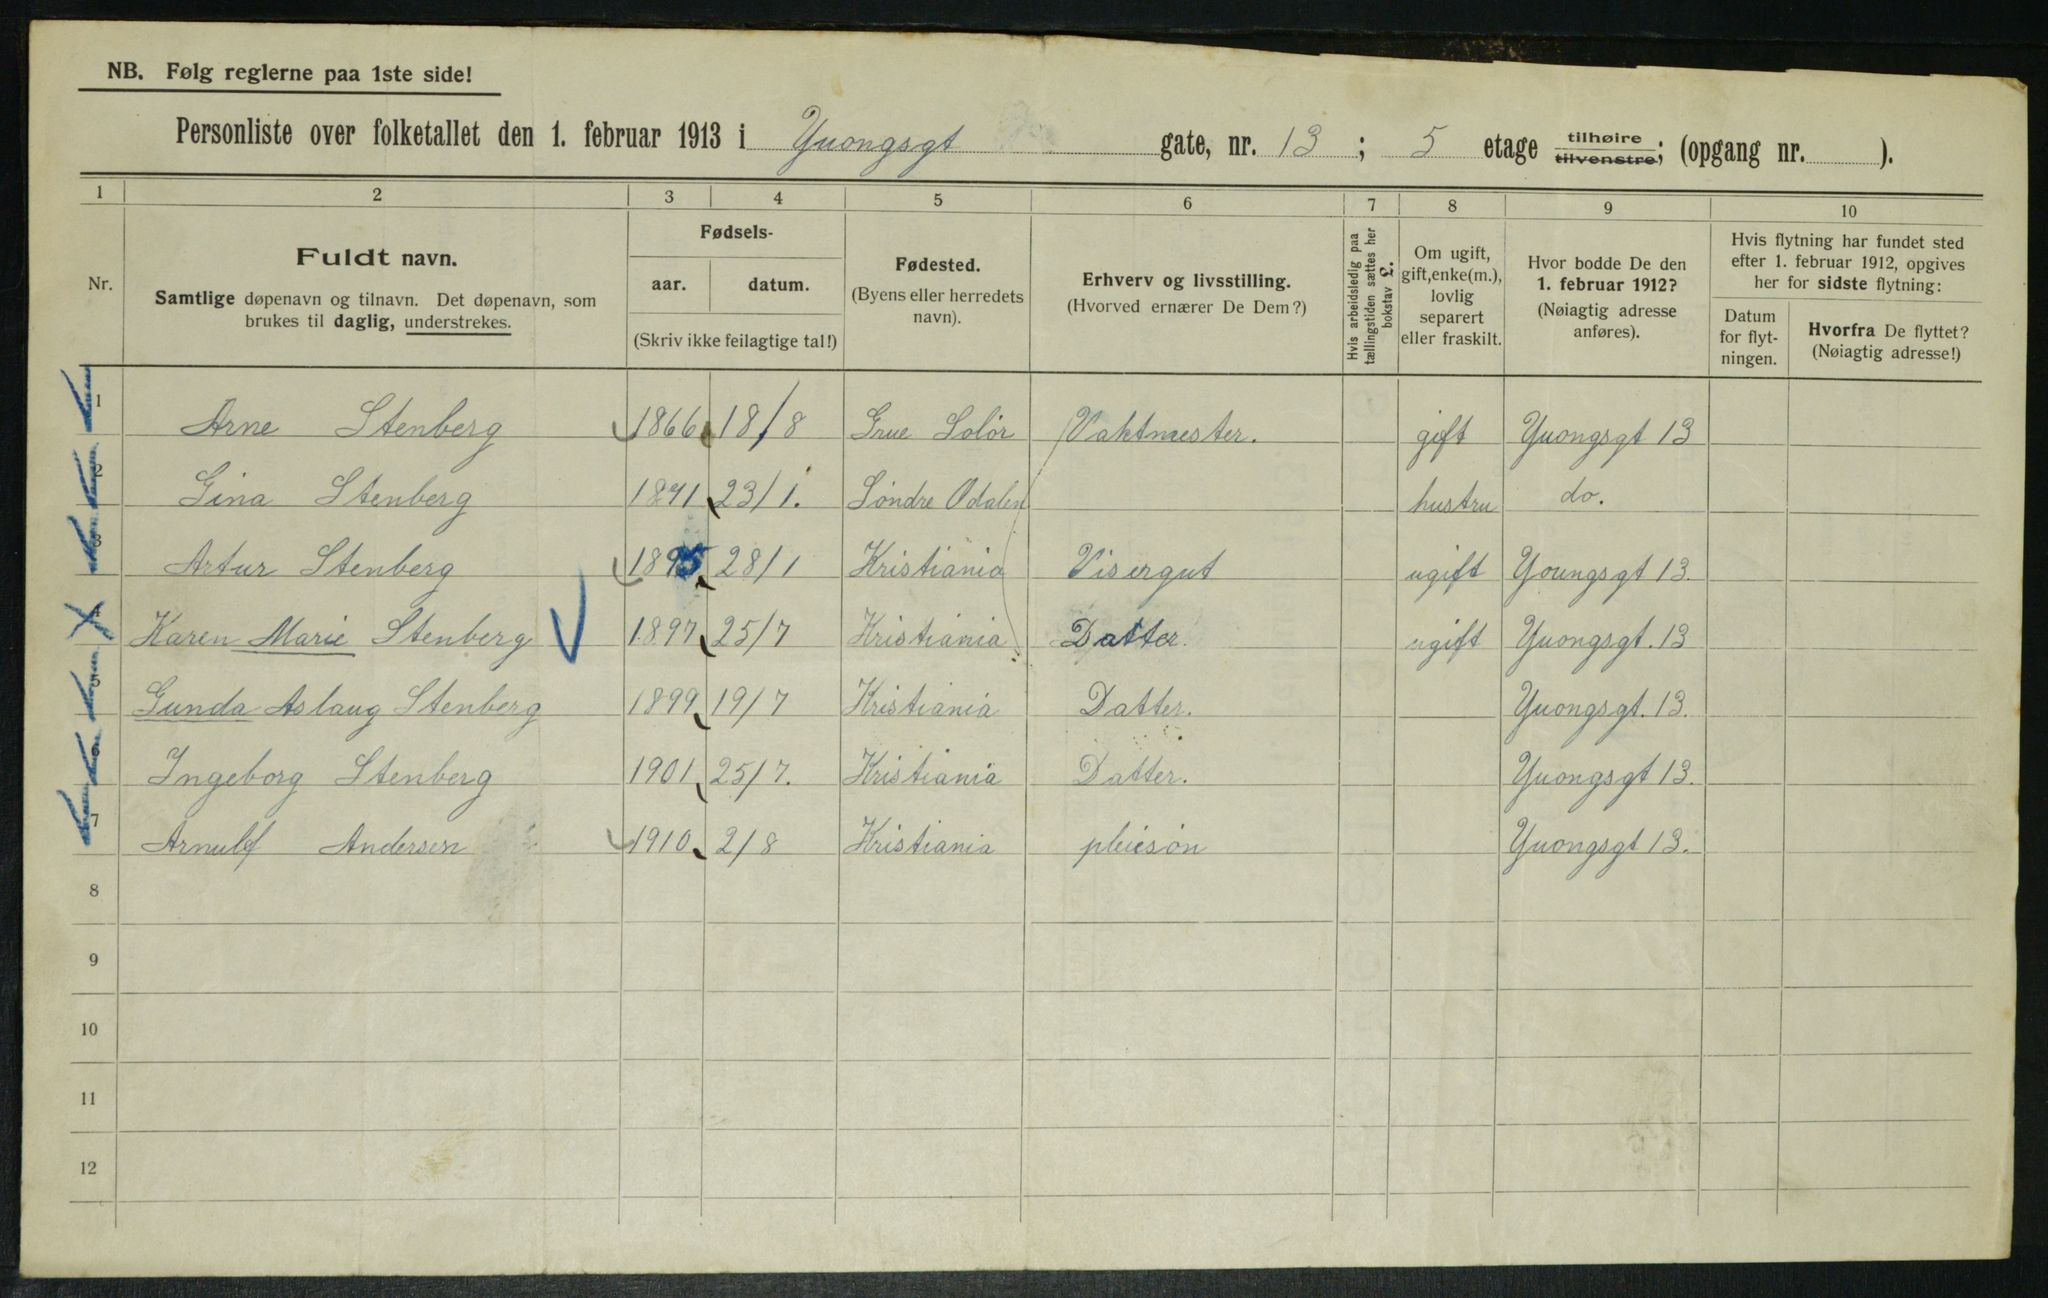 NB. Følg reglerne paa 1ste side!
Personliste over folketallet den 1. februar 1913 i Yuongsgt gate, nr. 13 ; 5 etage tilhøire tilvenstre; (opgang nr. ).
1 2 3 4 5 6 7 8 9 10
Nr.
Fuldt navn.
Samtlige døpenavn og tilnavn. Det døpenavn, som
brukes til daglig, understrekes.
Fødsels-
aar. datum.
(Skriv ikke feilagtige tal!)
Fødested.
(Byens eller herredets
navn).
Erhverv og livsstilling.
(Hvorved ernærer De Dem?)
Hvis arbeidsledig paa
tællingstiden sættes her
bokstav L.
Om ugift,
gift, enke(m.),
lovlig
separert
eller fraskilt.
Hvor bodde De den
1. februar 1912?
(Nøiagtig adresse
anføres).
Hvis flytning har fundet sted
efter 1. februar 1912, opgives
her for sidste flytning:
Datum
for flyt-
ningen.
Hvorfra De flyttet?
(Nøiagtig adresse!)
1 Arne Stenberg 1866 18/8 Grue Solör Vaktmester. gift Yuongsgt 13
2 Gina Stenberg 1871 23/1. Söndre Odalen hustru do.
3 Artur Stenberg 1895 28/1 Kristiania Visergut ugift Youngsgt 13.
4 Karen Marie Stenberg 1897 25/7 Kristiania Datter. ugift Yuongsgt. 13
5 Gunda Aslaug Stenberg 1899 19/7 Kristiania Datter. Yuongsgt. 13.
6 Ingeborg Stenberg 1901 25/7. Kristiania Datter. Yuongsgt 13.
7 Arnulf Andersen 1910 2/8 Kristiania pleiesön Yuongsgt 13.
8
9
10
11
12